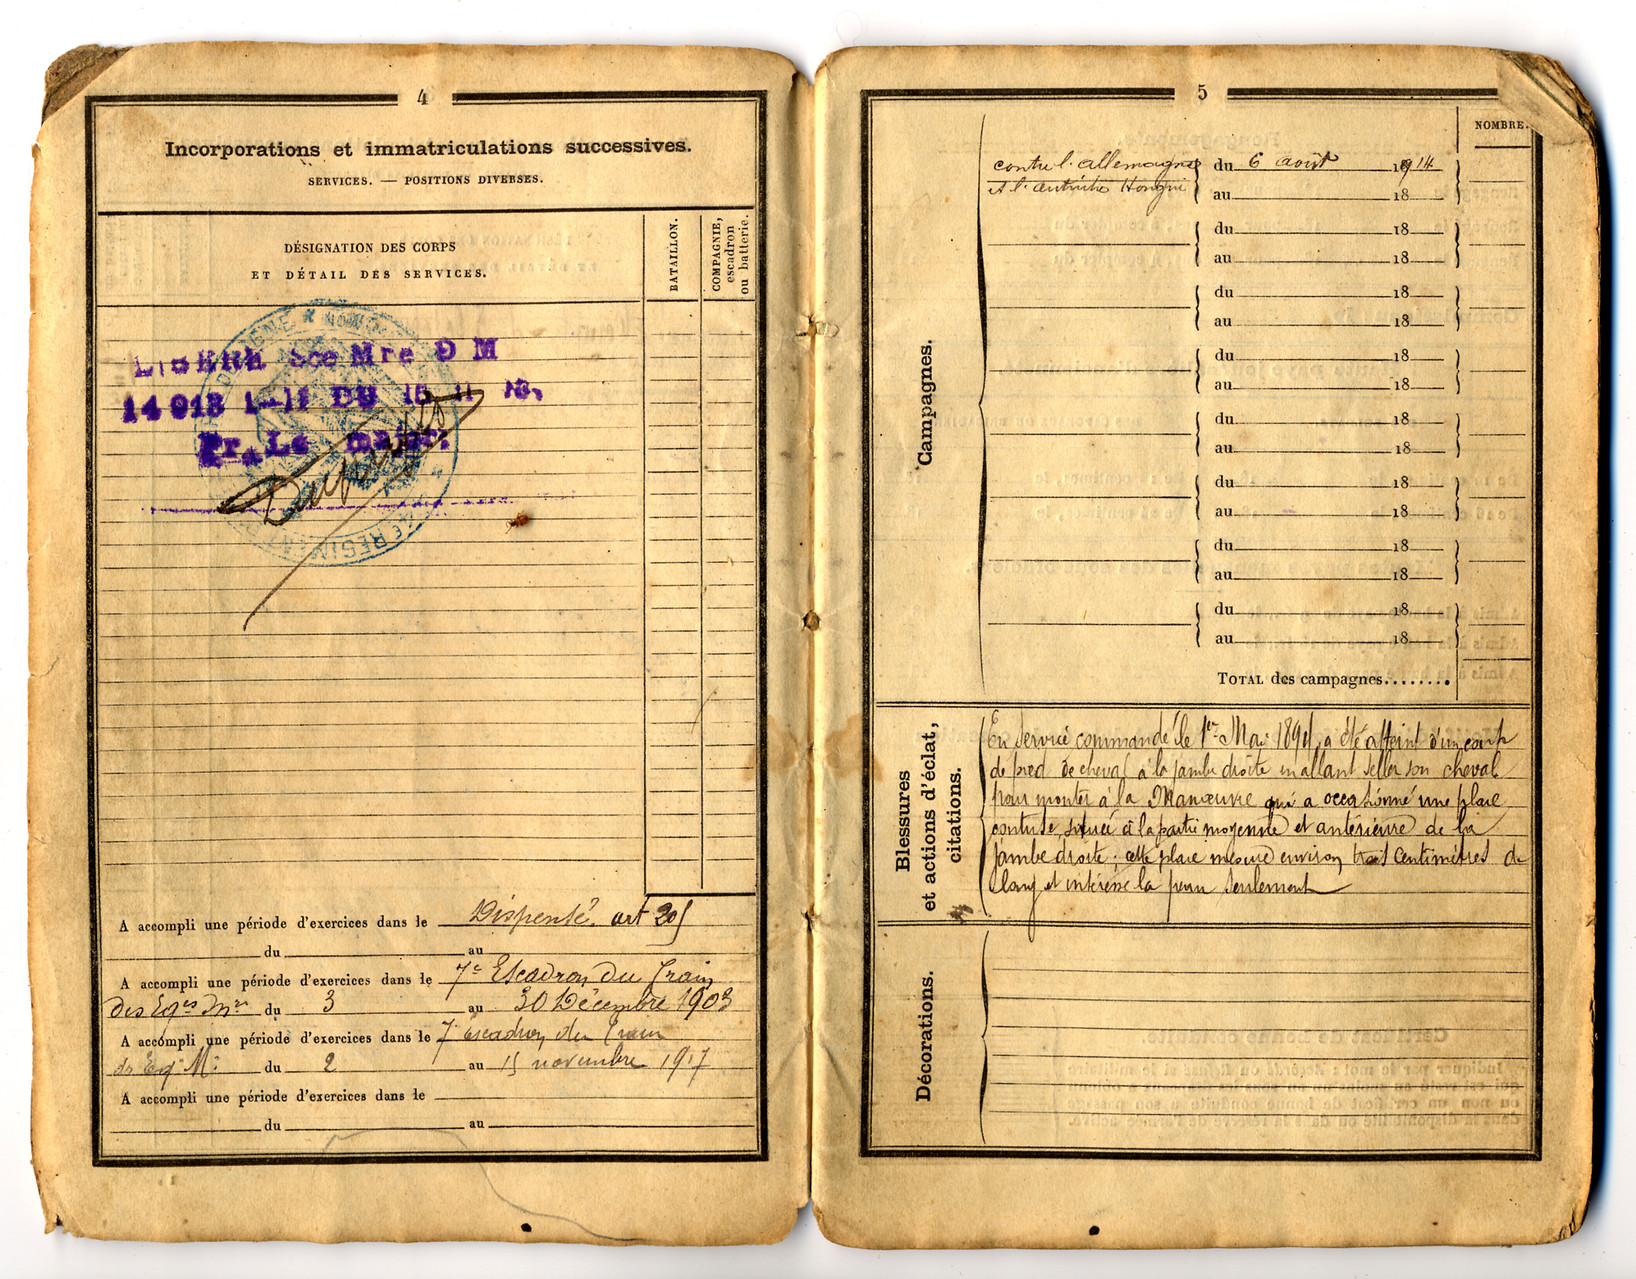 4
Incorporations et immatriculations successives.
SERVICES. — POSITIONS DIVERSES.
DÉSIGNATION DES CORPS
ET DÉTAIL DES SERVICES.
BATAILLON.
COMPAGNIE,
escadron
ou batterie.
Mre D M
14 018 DU 15 11
Pr. Le major:
REGIMENT
A accompli une période d'exercices dans le Dispensé art 20
du au
A accompli une période d'exercices dans le 7e Escadron du Train
des Eqes Mres du 3 au 30 Décembre 1903
A accompli une période d'exercices dans le 7 escadron du Train
du 2 au 15 novembre 1917
A accompli une période d'exercices dans le
du au
5
NOMBRE.
Campagnes.
contre l'allemagne du 6 août 1914
et l'autriche Hongrie au 18
du 18
au 18
du 18
au 18
du 18
au 18
du 18
au 18
du 18
au 18
du 18
au 18
du 18
au 18
TOTAL des campagnes........
Blessures
et actions d'éclat,
citations.
En service commandé le 1er Mai a été atteint d'un coup
de pied de cheval à la jambe droite en allant seller son cheval
pour monter à la Manœuvre qui a occasionné une plaie
contuse, située à la partie moyenne et antérieure de la
jambe droite; cette plaie mesure environ trois centimètres de
long et intéresse la peau seulement
Décorations.